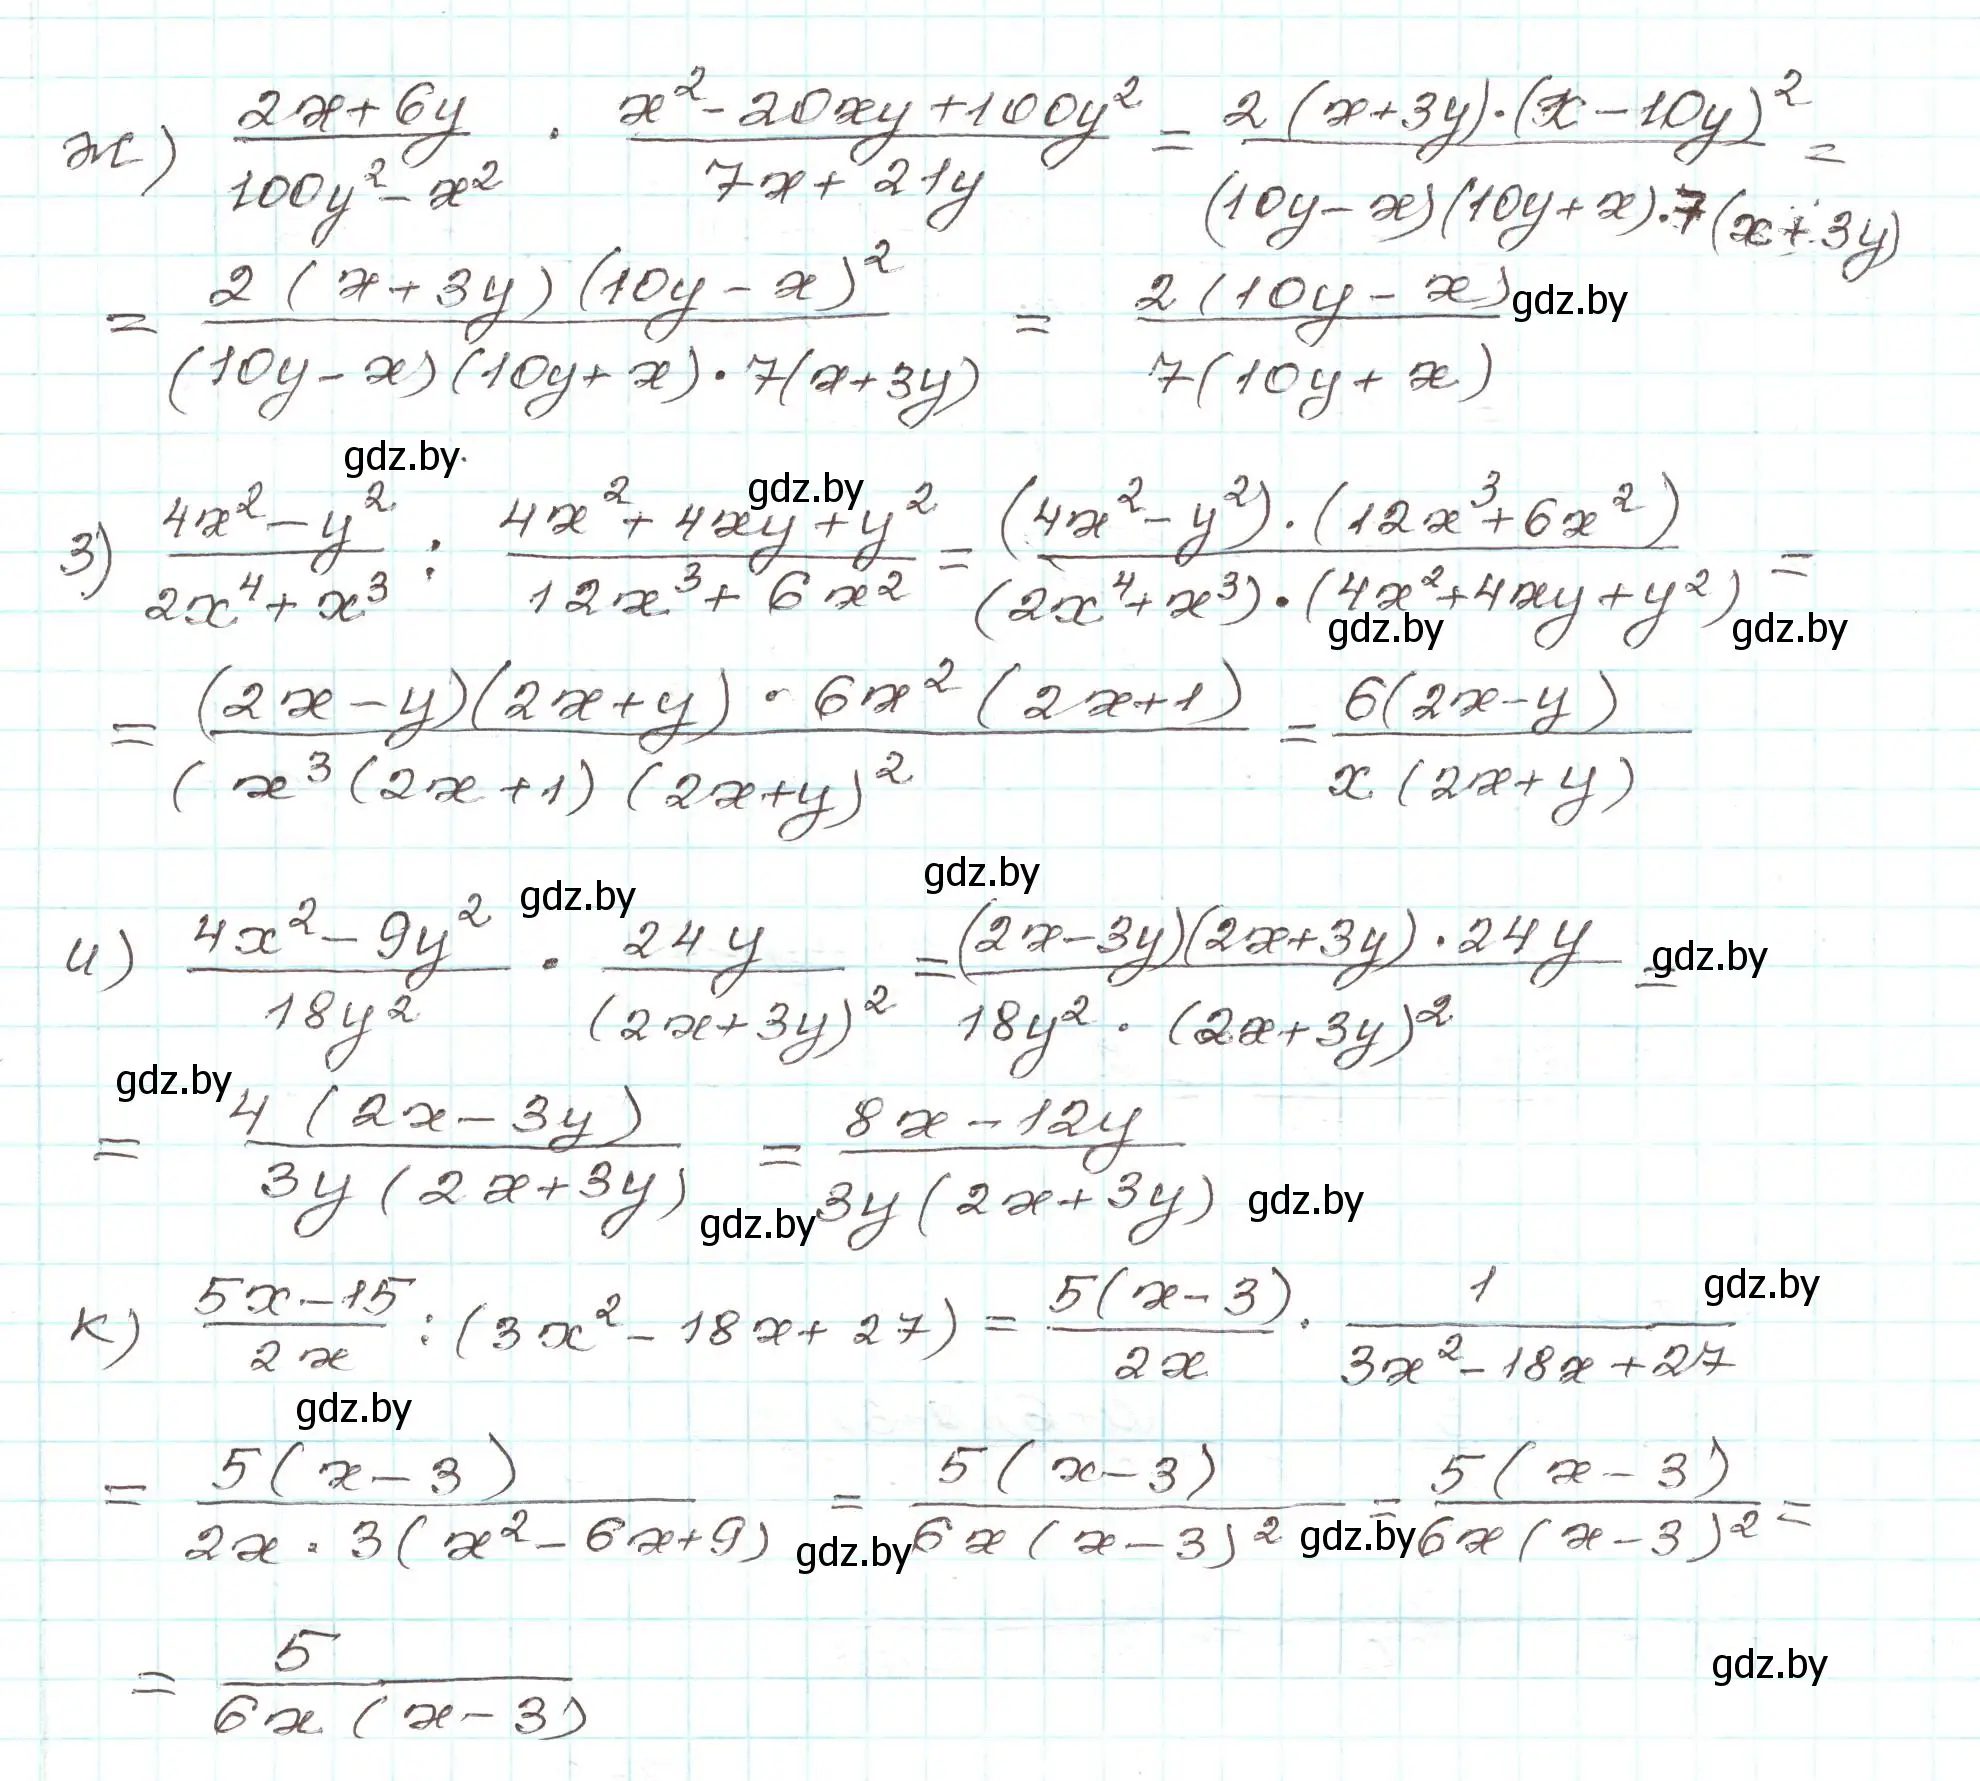 ж) (2x+6y)/(100y²-x²) · (x²-20xy+100y²)/(7x+21y) = (2(x+3y)·(x-10y)²)/((10y-x)(10y+x)·7(x+3y)) =
= (2(x+3y)(10y-x)²)/((10y-x)(10y+x)·7(x+3y)) = (2(10y-x))/(7(10y+x)) gdz.by
gdz.by gdz.by
з) (4x²-y²)/(2x⁴+x³) : (4x²+4xy+y²)/(12x³+6x²) = ((4x²-y²)·(12x³+6x²))/((2x⁴+x³)·(4x²+4xy+y²)) =
gdz.by gdz.by
= ((2x-y)(2x+y)·6x²(2x+1))/((x³(2x+1)(2x+y)²) = (6(2x-y))/(x(2x+y))
gdz.by gdz.by
и) (4x²-9y²)/(18y²) · (24y)/((2x+3y)²) = ((2x-3y)(2x+3y)·24y)/(18y²·(2x+3y)²) = gdz.by
gdz.by
= (4(2x-3y))/(3y(2x+3y)) = (8x-12y)/(3y(2x+3y)) gdz.by
gdz.by
к) (5x-15)/(2x) : (3x²-18x+27) = (5(x-3))/(2x) · 1/(3x²-18x+27) gdz.by
gdz.by
= (5(x-3))/(2x·3(x²-6x+9)) = (5(x-3))/(6x(x-3)²) = (5(x-3))/(6x(x-3)²) =
gdz.by gdz.by
= 5/(6x(x-3)) gdz.by